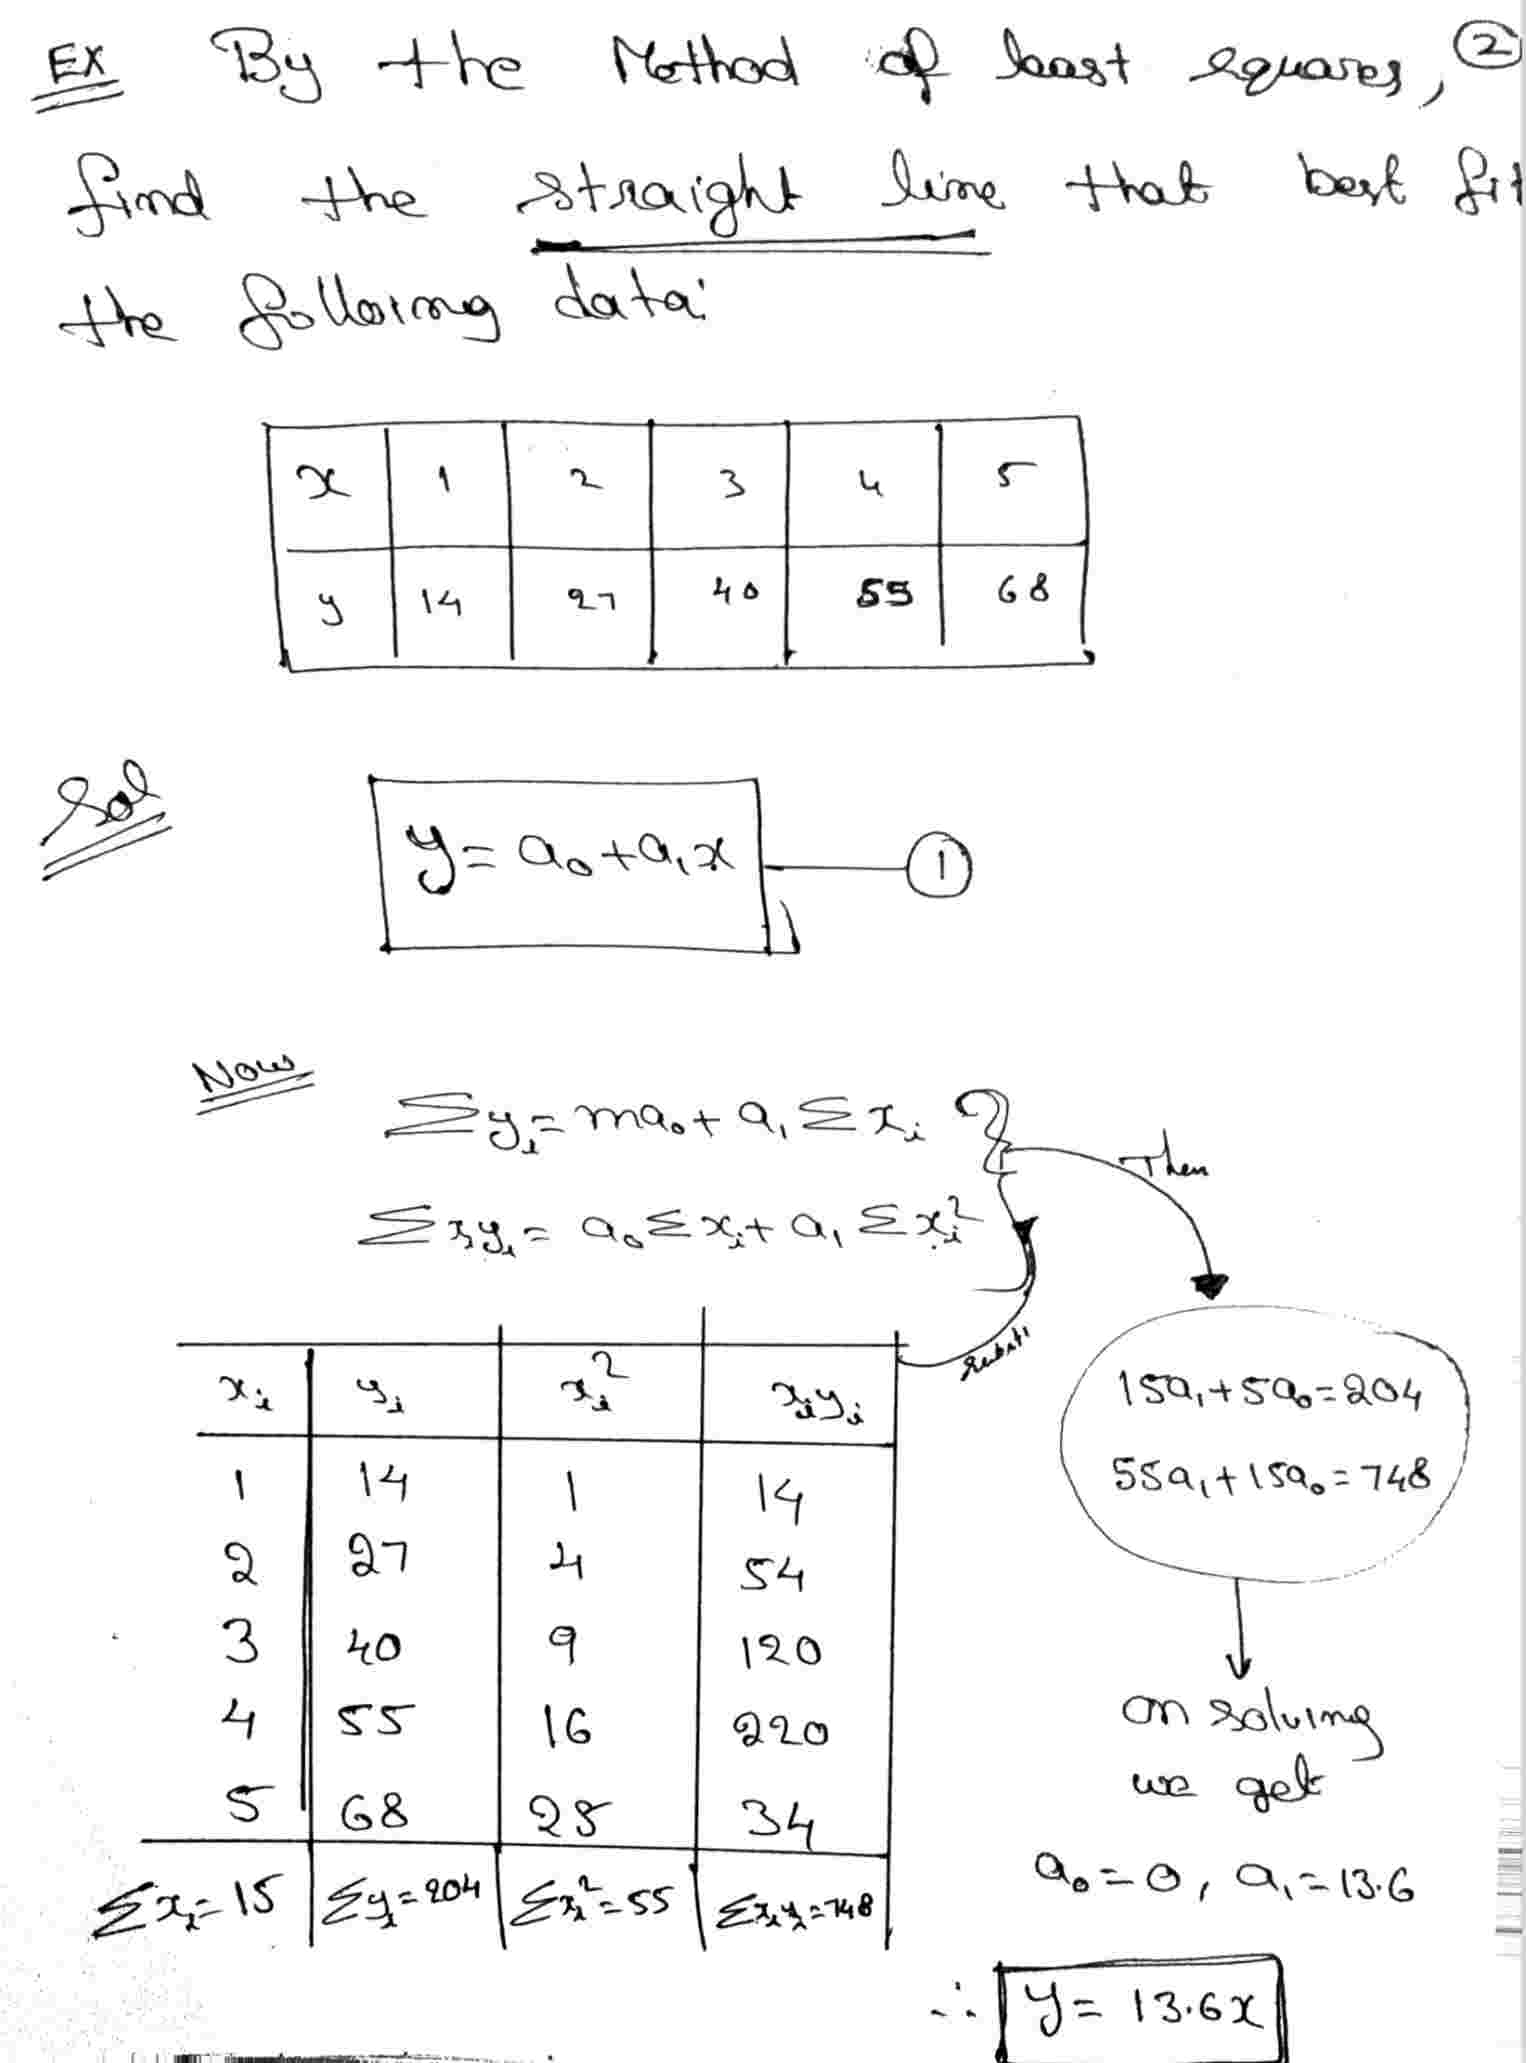 Ex By the Method of least squares, ②
find the straight line that best fit
the following data:
x 1 2 3 4 5
y 14 27 40 55 68
Sol y = a₀ + a₁x — ①
Now Σyᵢ = ma₀ + a₁Σxᵢ
Then
Σxᵢyᵢ = a₀Σxᵢ + a₁Σxᵢ²
xᵢ yᵢ xᵢ² xᵢyᵢ
1 14 1 14
2 27 4 54
3 40 9 120
4 55 16 220
5 68 25 34
Σxᵢ = 15 Σyᵢ = 204 Σxᵢ² = 55 Σxᵢyᵢ = 748
15a₁ + 5a₀ = 204
55a₁ + 15a₀ = 748
on solving
we get
a₀ = 0, a₁ = 13.6
∴ y = 13.6x